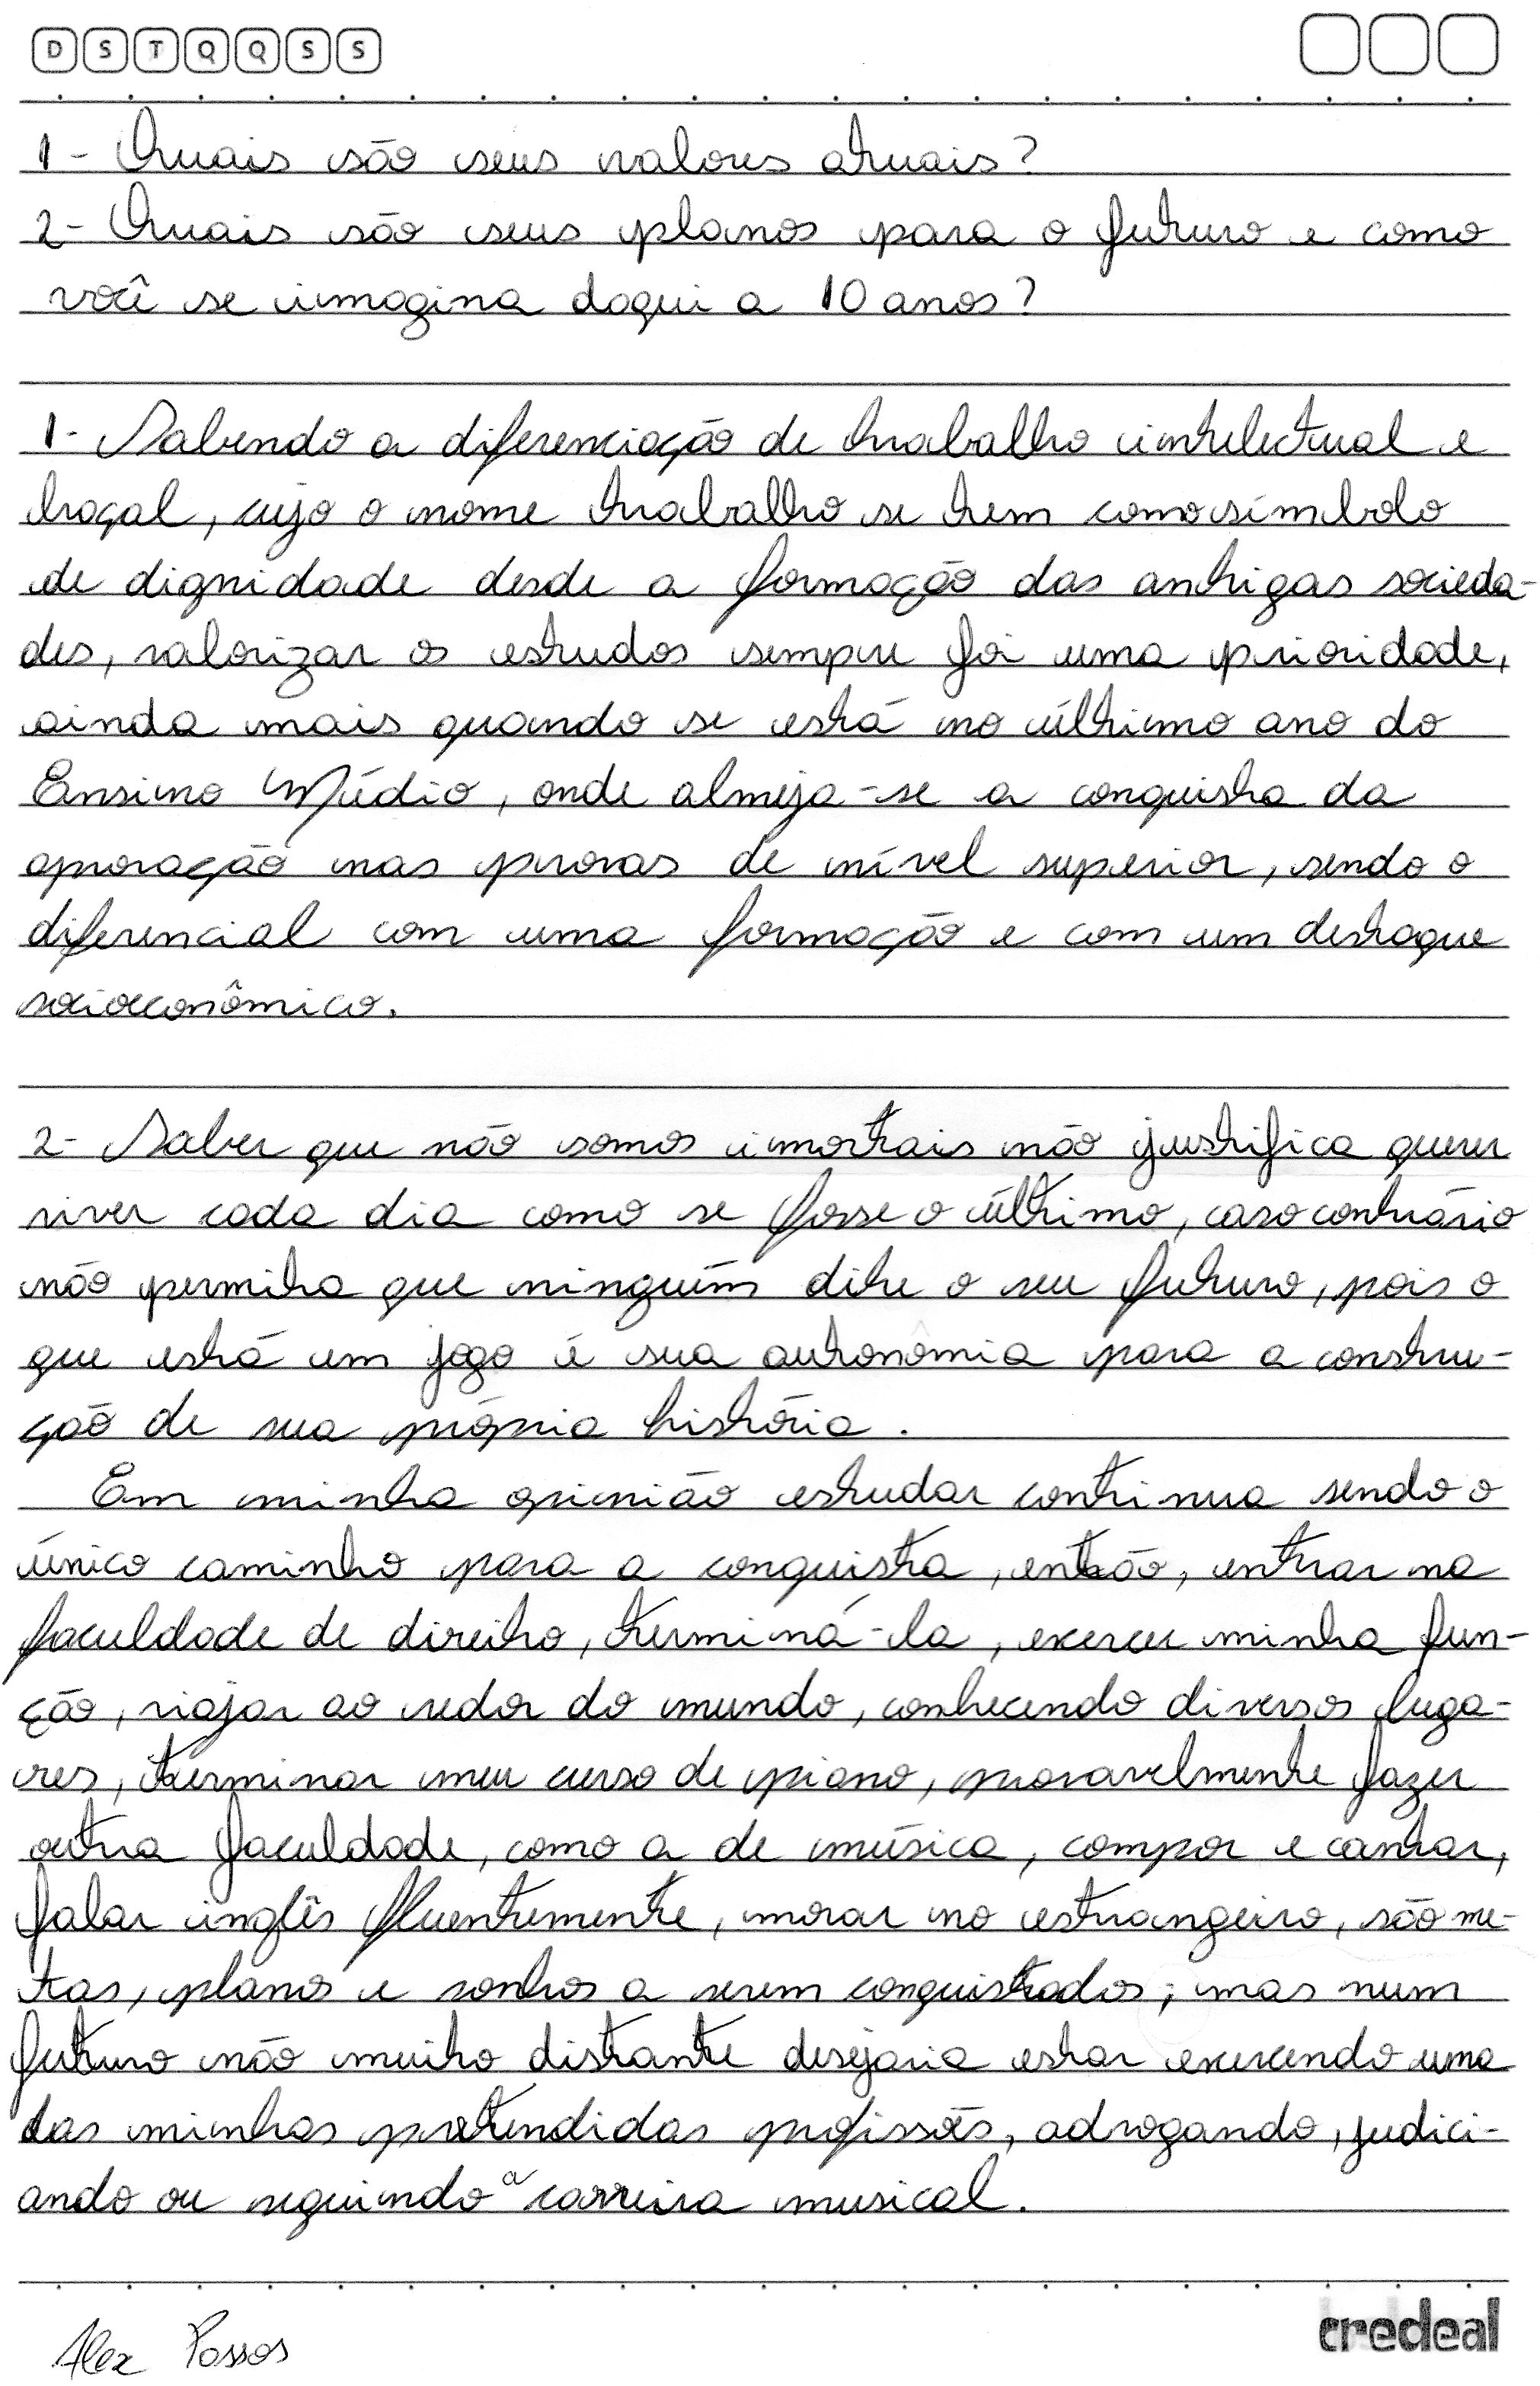 D S T Q Q S S
1- Quais são seus valores atuais?
2- Quais são seus planos para o futuro e como
você se imagina daqui a 10 anos?
1- Sabendo a diferenciação de trabalho intelectual e
braçal, cujo o nome trabalho se tem como símbolo
de dignidade desde a formação das antigas socieda-
des, valorizar os estudos sempre foi uma prioridade,
ainda mais quando se está no último ano do
Ensino Médio, onde almeja-se a conquista da
aprovação nas provas de nível superior, sendo o
diferencial com uma formação e com um destaque
socioeconômico.
2- Saber que não somos imortais não justifica querer
viver cada dia como se fosse o último, caso contrário
não permita que ninguém dite o seu futuro, pois o
que está em jogo é sua autonômia para a constru-
ção de sua própria história.
Em minha opinião estudar continua sendo o
único caminho para a conquista, então, entrar na
faculdade de direito, terminá-la, exercer minha fun-
ção, viajar ao redor do mundo, conhecendo diversos luga-
res, terminar meu curso de piano, provavelmente fazer
outra faculdade, como a de música, compor e cantar,
falar inglês fluentemente, morar no estrangeiro, são me-
tas, planos e sonhos a serem conquistados; mas num
futuro não muito distante desejaria estar exercendo uma
das minhas pretendidas profissões, advogando, judici-
ando ou seguindo a carreira musical.
Alex Possos
credeal